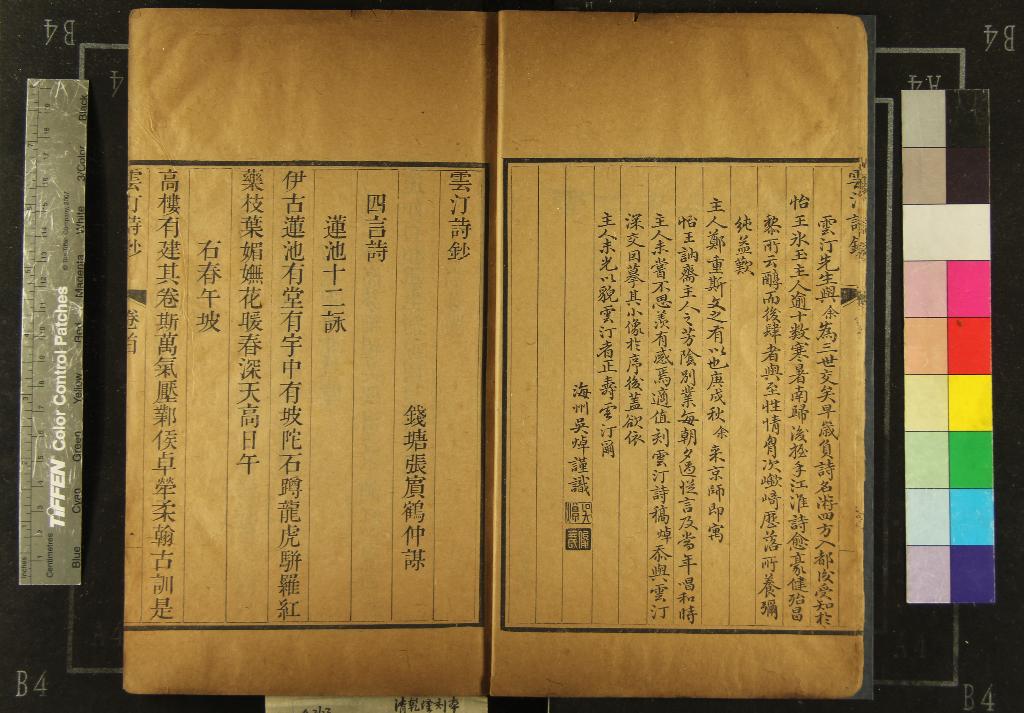 雲汀先生與余為三世交矣早歲負詩名游四方入都後受知於
怡王冰玉主人逾十數寒暑南歸後掋手江淮詩愈豪健殆昌
黎所云醇而後肆者與至性情胷次嶔崎歷落所養彌
純益歎
主人鄭重斯文之有以也庚戍秋余來京師即寓
怡王訥齋主人之芳陰別業每朝夕過從言及當年唱和時
主人未嘗不思羨有感焉適值刻雲汀詩稿焯忝與雲汀
深交因摹其小像於序後蓋欲依
主人末光以貌雲汀者正壽雲汀爾
海州吳焯謹識
雲汀詩鈔
錢塘張賔鶴仲謀
四言詩
蓮池十二詠
伊古蓮池有堂有宇中有坡陀石蹲龍虎駢羅紅
藥枝葉媚嫵花暖春深天高日午
右春午坡
高樓有建其卷斯萬氣壓鄴侯卓犖柔翰古訓是
雲汀詩鈔 卷首
TIFFEN Color Control Patches
Blue Cyan Green Yellow Red Magenta White 3/Color Black
Centimetres
Inches
B4
B4
B4
B4
A4
清乾隆刻本